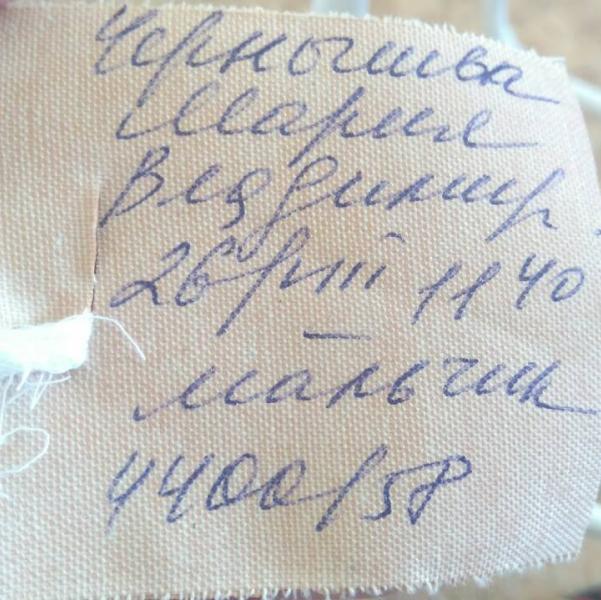 Чернышва
Мария
Владимир.
26/VIII 11 40
мальчик
4400/58